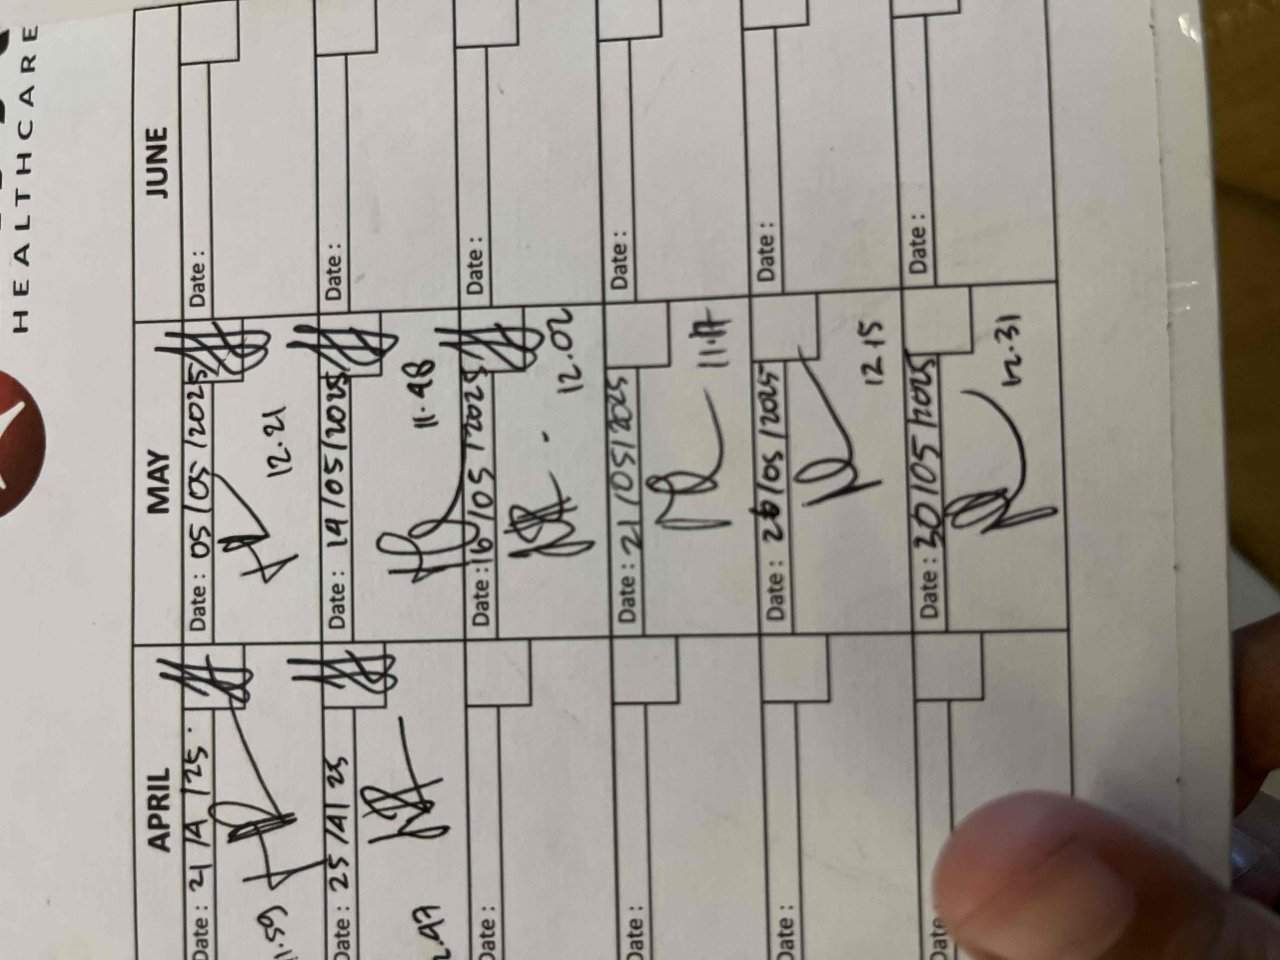 HEALTHCARE
APRIL MAY JUNE
Date : 21/4/25. Date : 05/05/2025 Date :
11.59 12.21
Date : 25/4/25 Date : 14/05/2025 Date :
2.47 11.48
Date : Date : 16/05/2025 Date :
12.02
Date : Date : 21/05/2025 Date :
11.17
Date : Date : 26/05/2025 Date :
12.15
Date Date : 30/05/2025 Date :
12.31